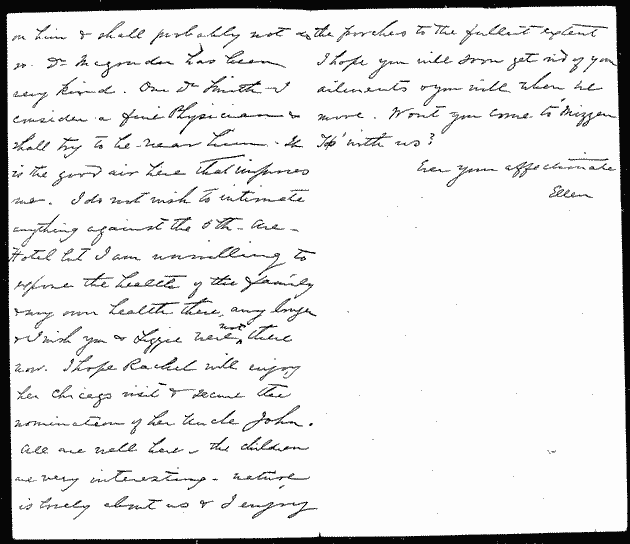 on him & shall probably not do
so. Dr Magruder has been
very kind. Our Dr Smith I
consider a fine Physician &
shall try to be near him. It
is the good air here that improves
me. I do not wish to intimate
anything against the 5th Ave
Hotel but I am unwilling to
expose the health of the family
& my own health there any longer
& I wish you & Lizzie were not there
now. I hope Rachel will enjoy
her Chicago visit & secure the
nomination of her Uncle John.
All are well here - the children
are very interesting - nature
is lovely about us & I enjoy
the porches to the fullest extent
I hope you will soon get rid of your
ailments & you will when we
move. Wont you come to Mizzen
Top with us?
Ever your affectionate
Ellen